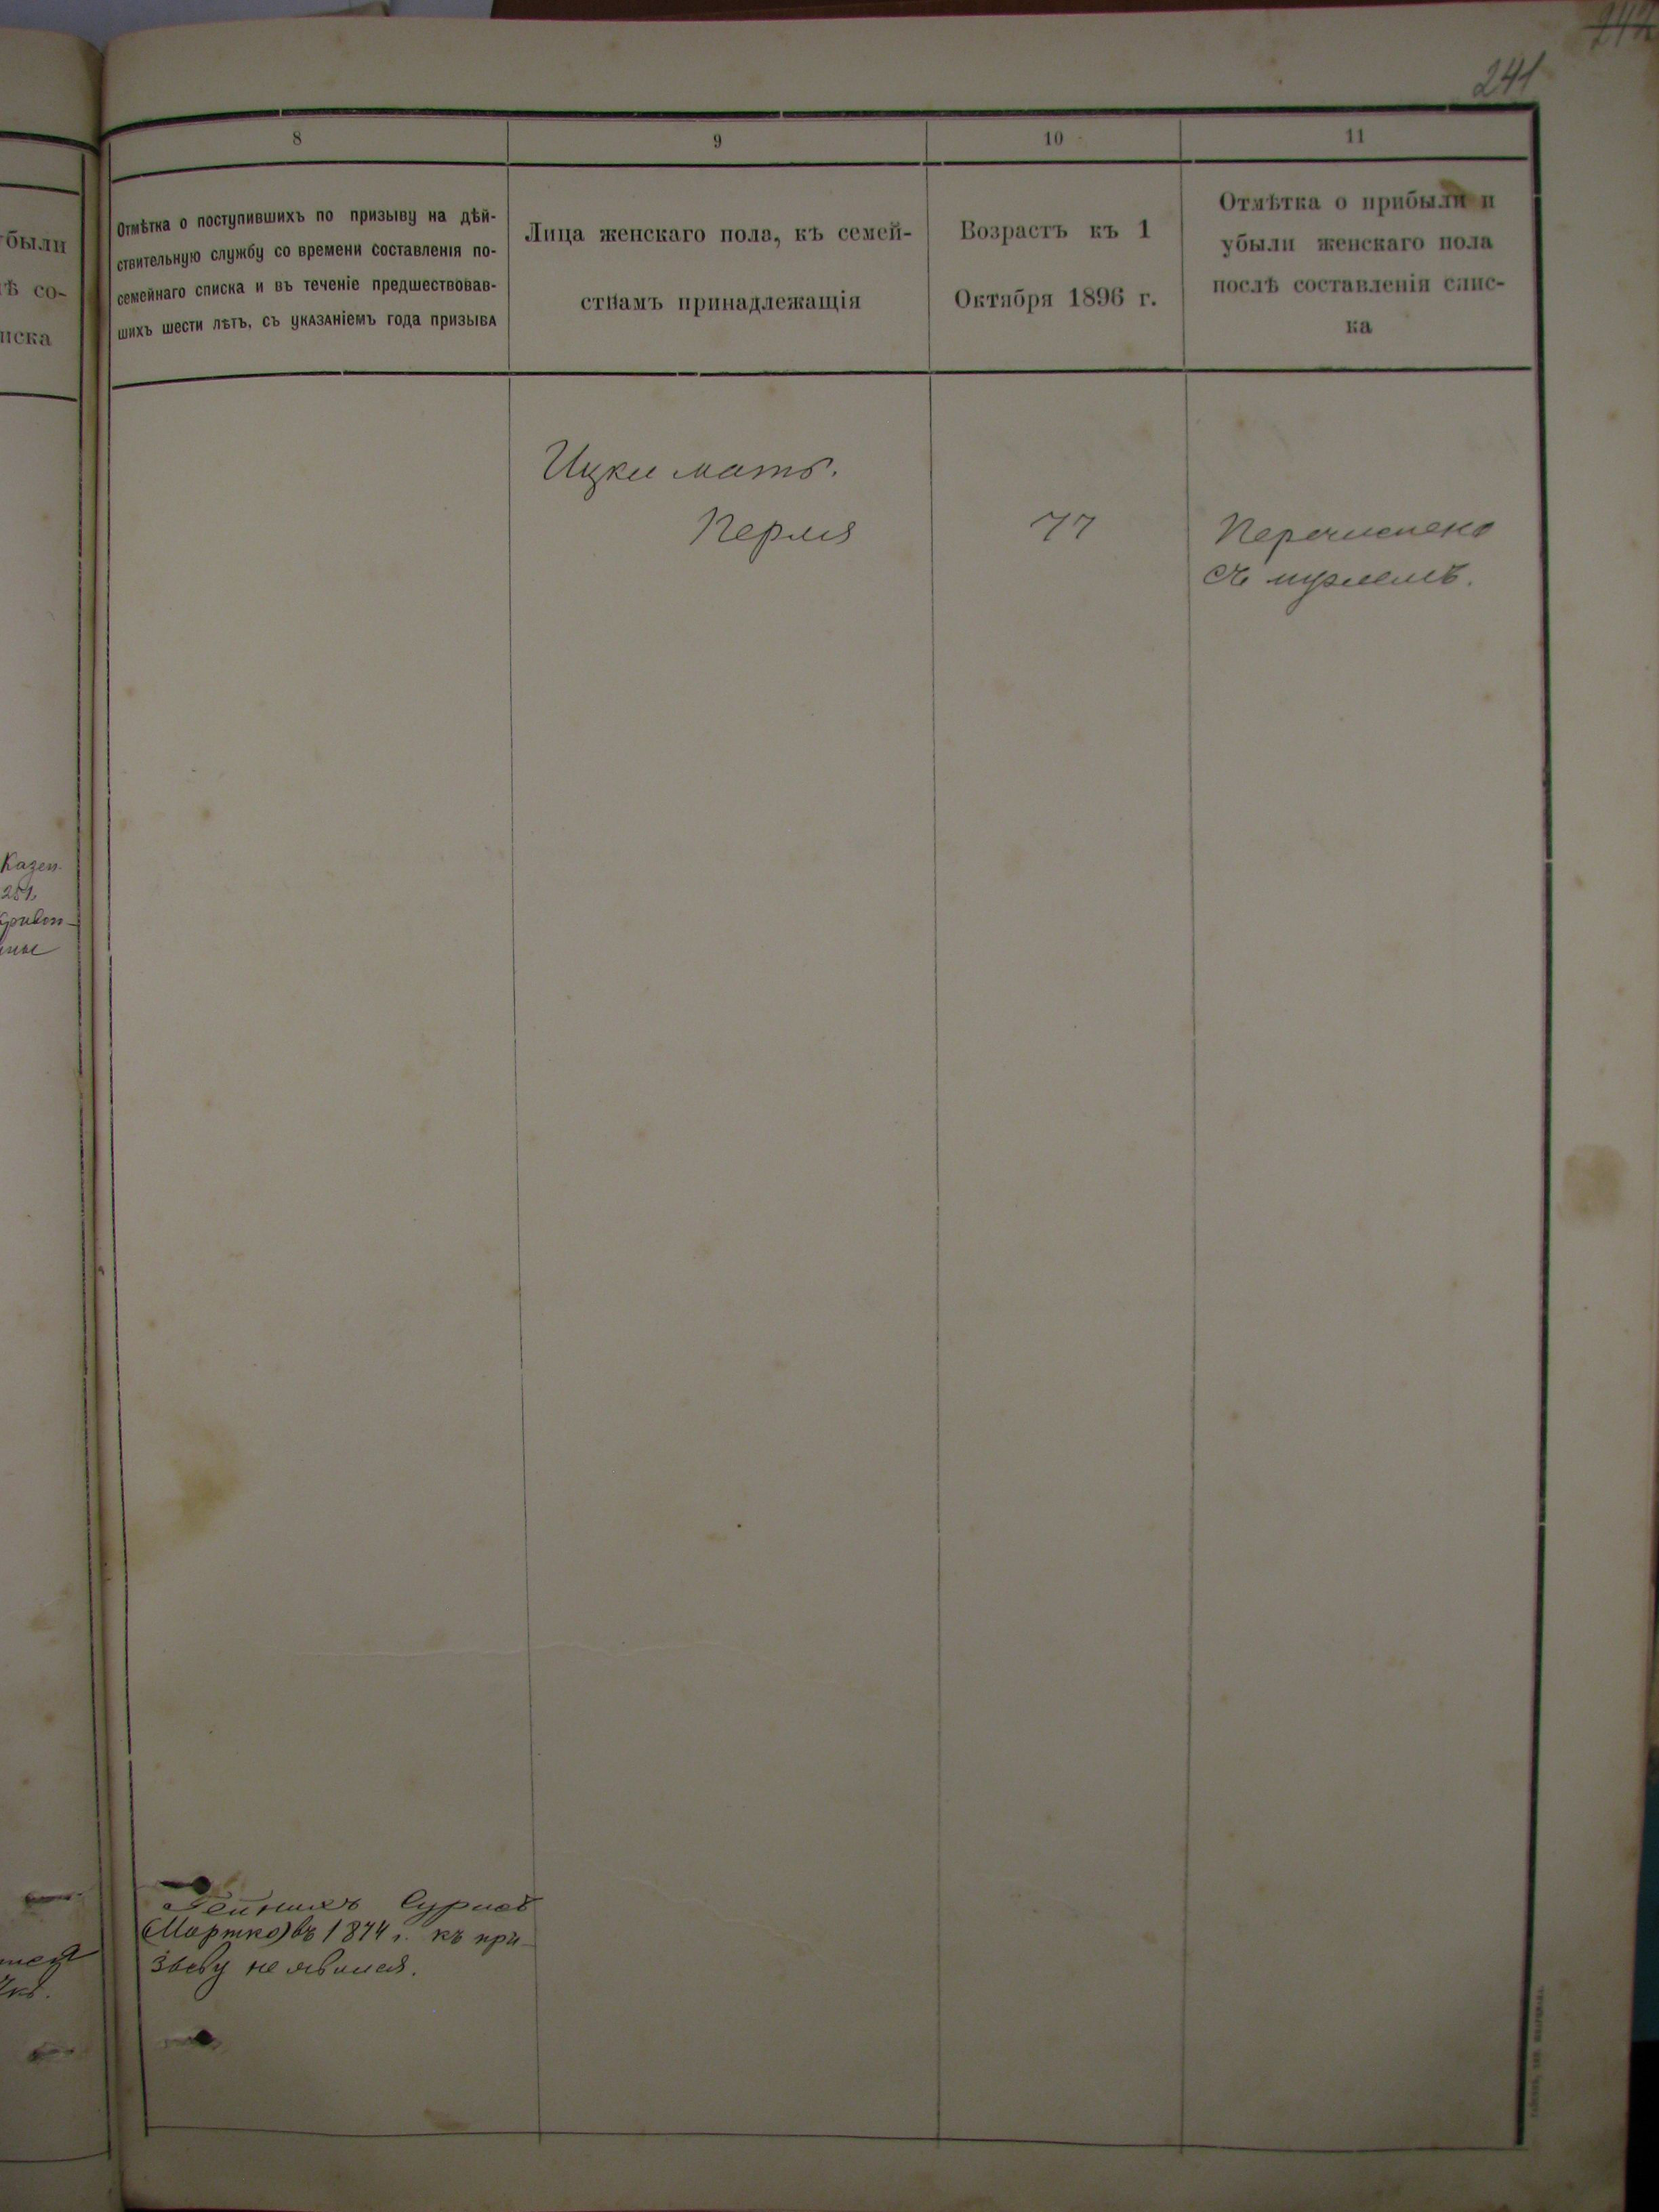 242
241
8
9
10
11
Отмѣтка о поступившихъ по призыву на дѣй-
ствительную службу со времени составленія по-
семейнаго списка и въ теченіе предшествовав-
шихъ шести лѣтъ, съ указаніемъ года призыва
Лица женскаго пола, къ семей-
ствамъ принадлежащія
Возрастъ къ 1
Октября 1896 г.
Отмѣтка о прибыли и
убыли женскаго пола
послѣ составленія спис-
ка
были
ѣ со-
иска
Ицки мать.
Перля
77
Перечислена
съ мужемъ.
Казен.
251
(Мортко) въ 1874 г. къ при-
зыву не явился.